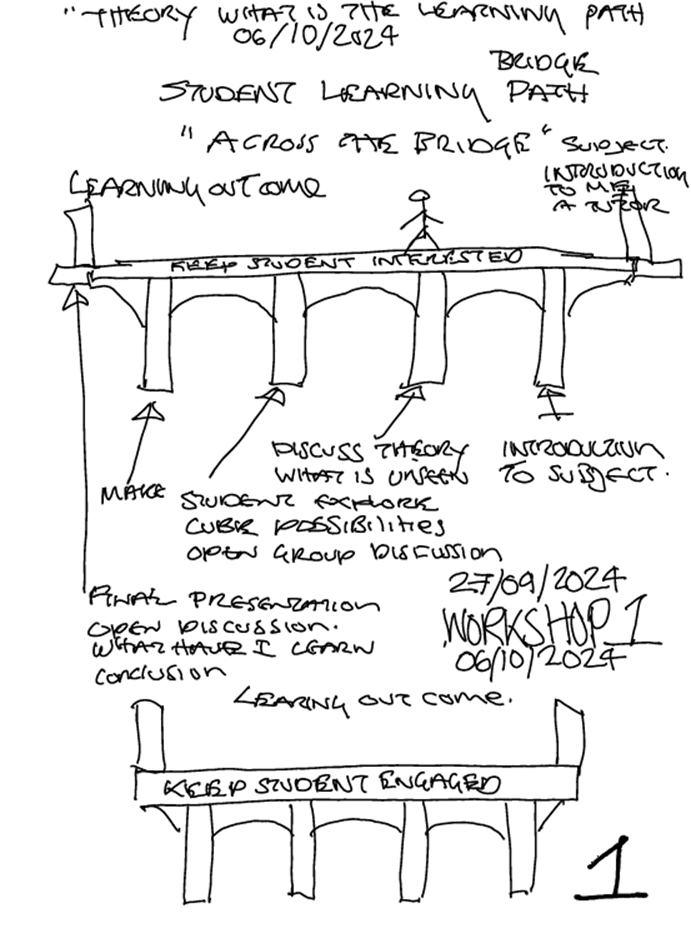 "THEORY WHAT IS THE LEARNING PATH
06/10/2024
BRIDGE
STUDENT LEARNING PATH
"ACROSS THE BRIDGE"
SUBJECT.
INTRODUCTION
TO ME
A TUTOR
LEARNING OUTCOME
KEEP STUDENT INTERESTED
DISCUSS THEORY
WHAT IS UNSEEN
INTRODUCTION
TO SUBJECT.
MAKE
STUDENT EXPLORE
CUBE POSSIBILITIES
OPEN GROUP DISCUSSION
27/09/2024
WORKSHOP 1
06/10/2024
FINAL PRESENTATION
OPEN DISCUSSION.
WHAT HAVE I LEARN
CONCLUSION
LEARING OUT COME.
KEEP STUDENT ENGAGED
1